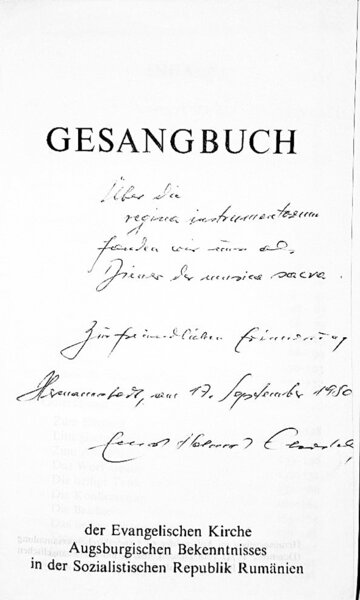 GESANGBUCH
Über die
regina instrumentorum
fanden wir uns als
Diener der musica sacra.
Zur freundlichen Erinnerung
Hermannstadt, am 17. September 1980
Ernst Helmut
der Evangelischen Kirche
Augsburgischen Bekenntnisses
in der Sozialistischen Republik Rumänien